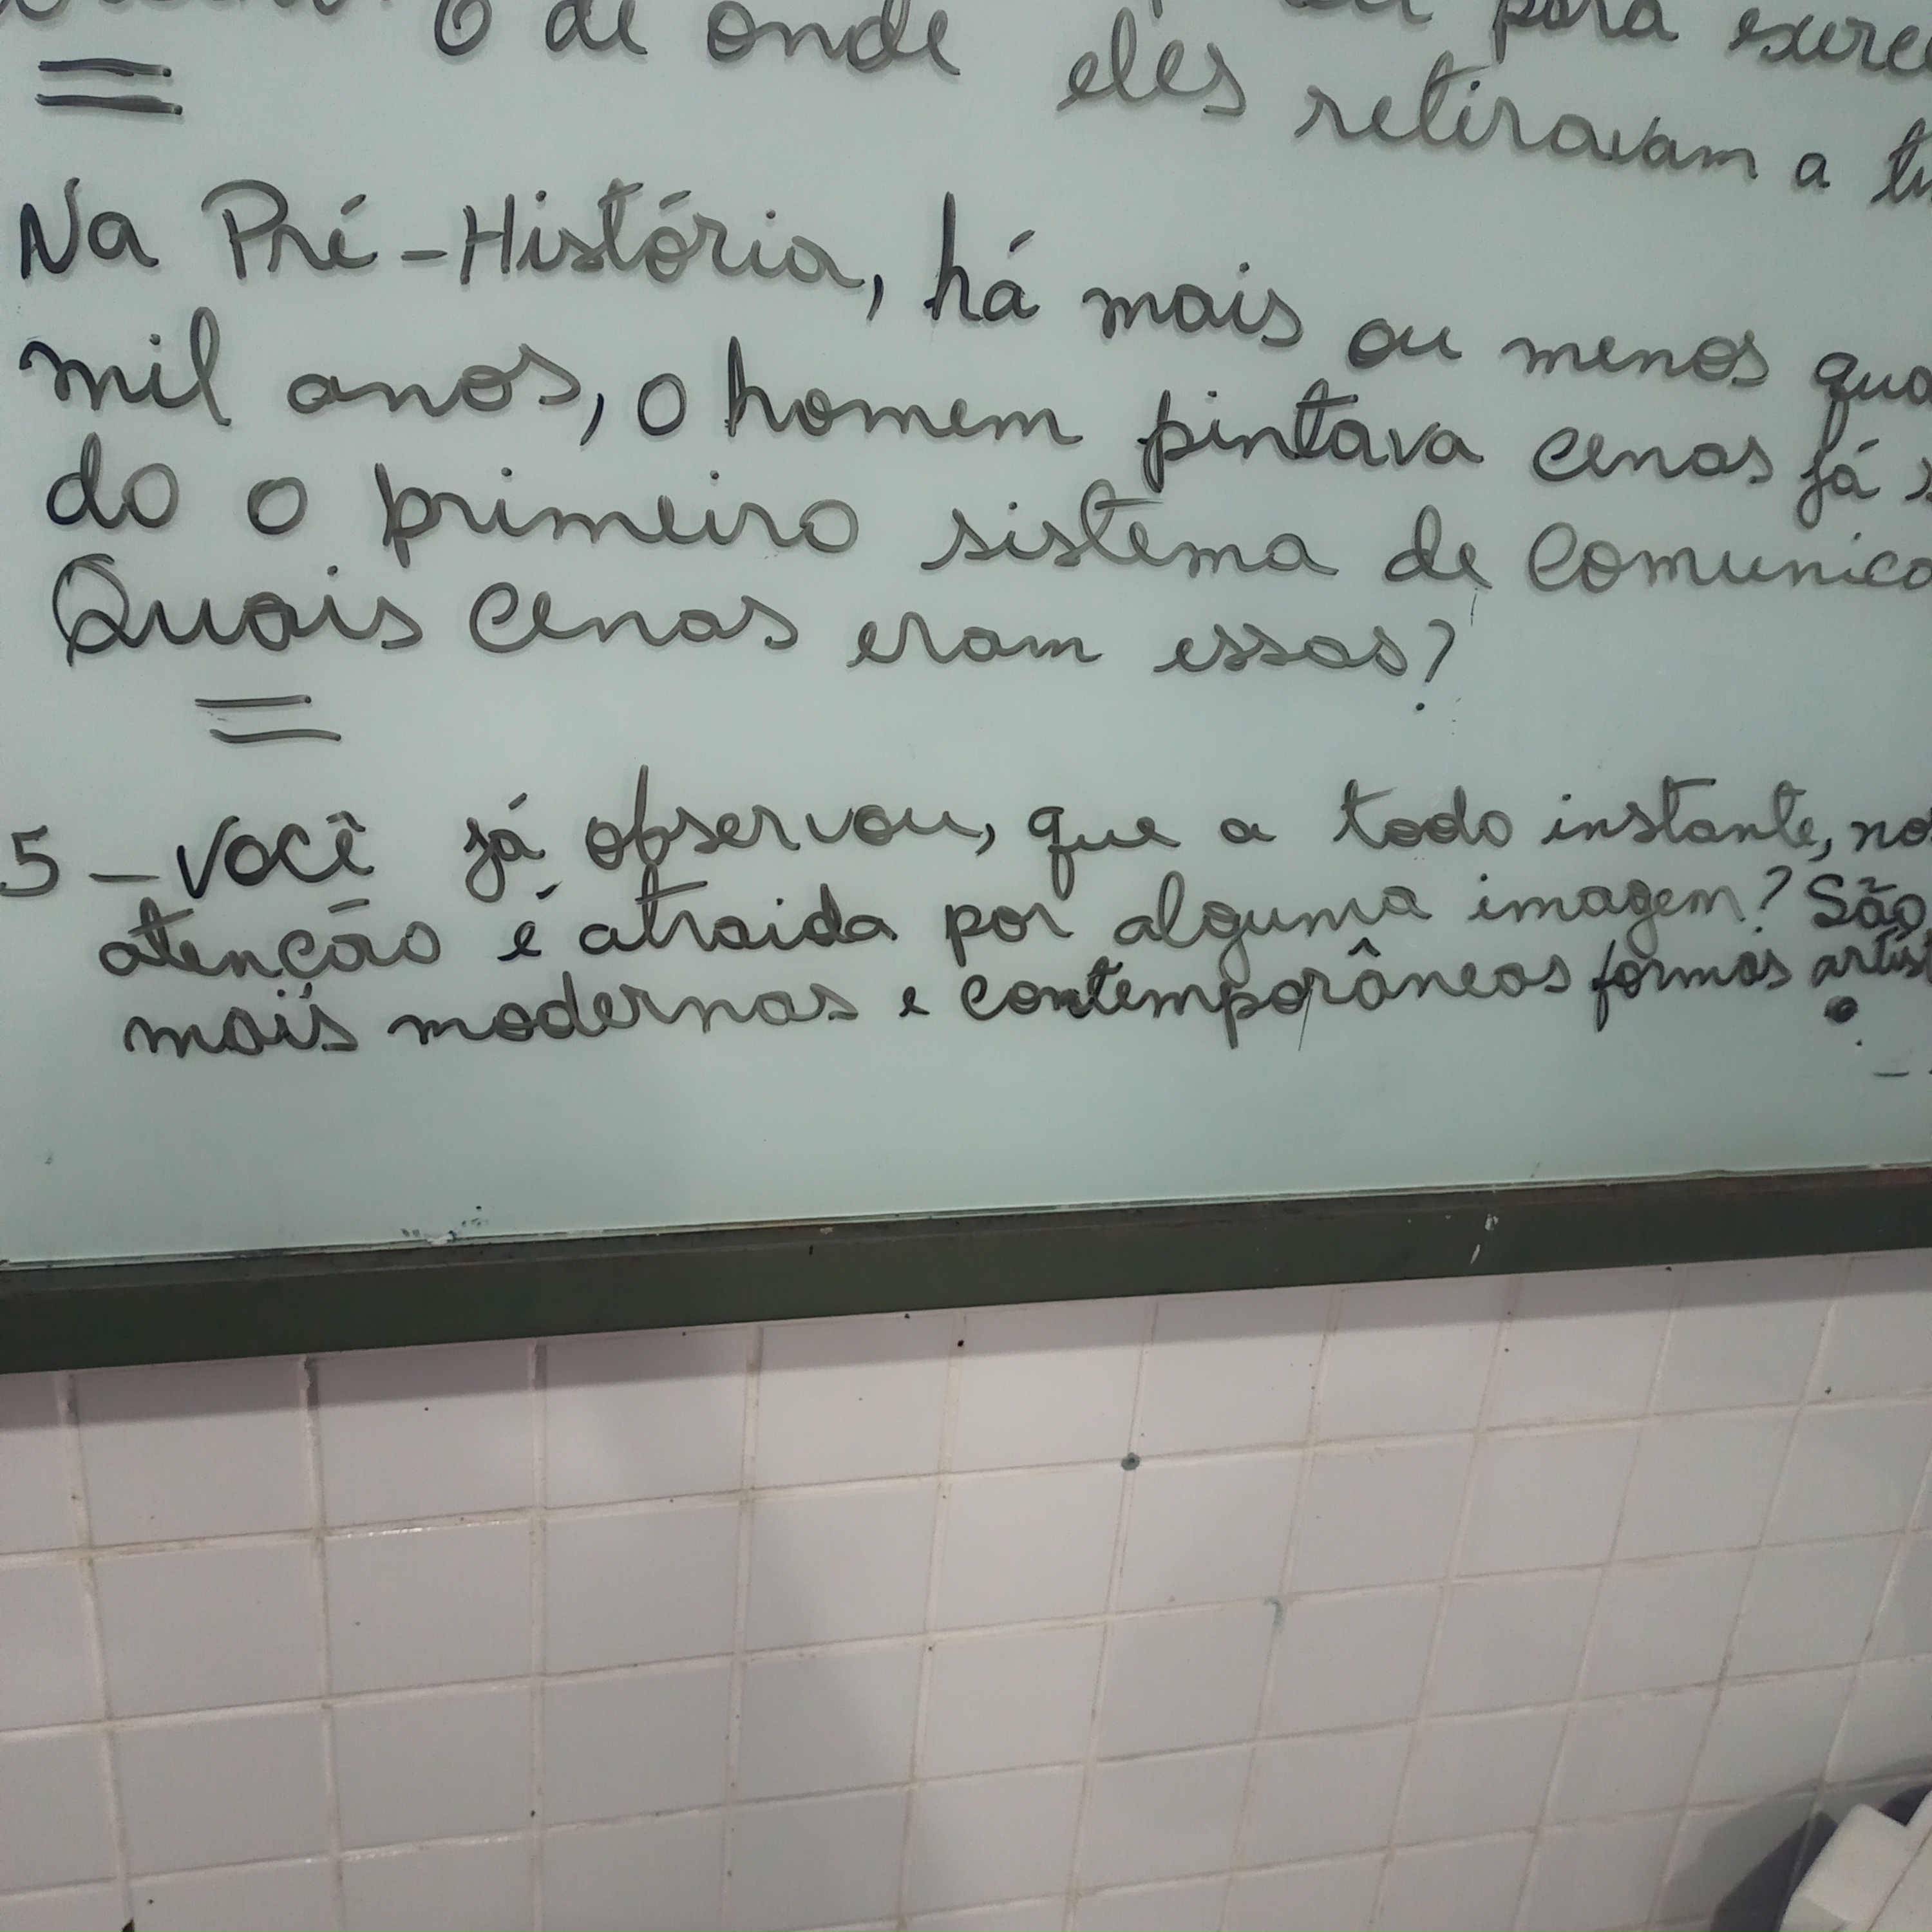 o de onde eles retiravam a
para
Na Pré-História, há mais ou menos
mil anos, o homem pintava cenas já
do o primeiro sistema de
Quais cenas eram essas?
5 - Você já observou, que a todo instante,
atenção é atraida por alguma imagem? São
mais modernas e contemporâneas formas